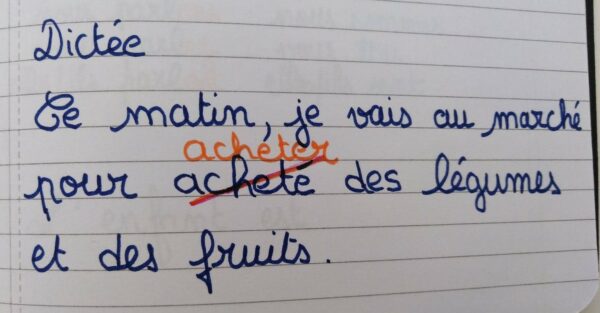 Dictée
Ce matin, je vais au marché
acheter
pour acheté des légumes
et des fruits.